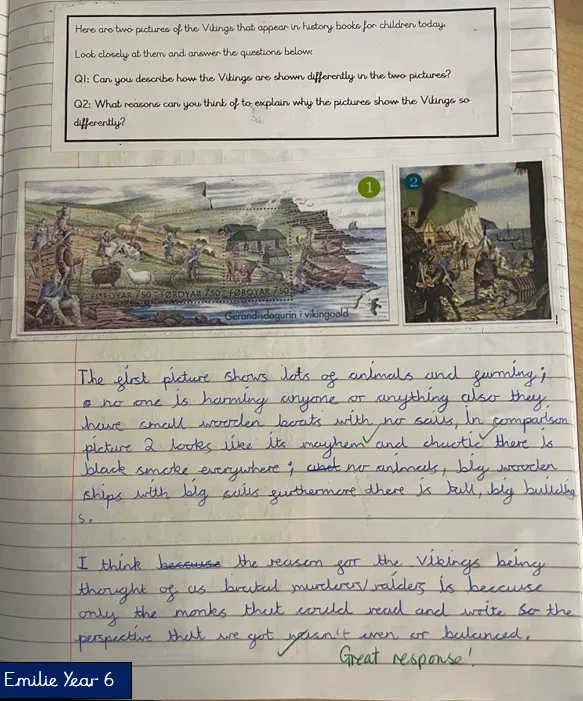 Here are two pictures of the Vikings that appear in history books for children today.
Look closely at them and answer the questions below:
Q1: Can you describe how the Vikings are shown differently in the two pictures?
Q2: What reasons can you think of to explain why the pictures show the Vikings so
differently?
1
2
FØROYAR 750 FØROYAR 750 FØROYAR 750
Gerandisdagurin í víkingaøld
The first picture shows lots of animals and farming;
no one is harming anyone or anything also they
have small wooden boats with no sails, in comparison
picture 2 looks like its mayhem and chaotic there is
black smoke everywhere; no animals, big wooden
ships with big sails furthermore there is tall, big building
s.
I think because the reason for the Vikings being
thought of as brutal murderers/raiders is because
only the monks that could read and write so the
perspective that we got wasn't even or balanced.
Great response!
Emilie Year 6